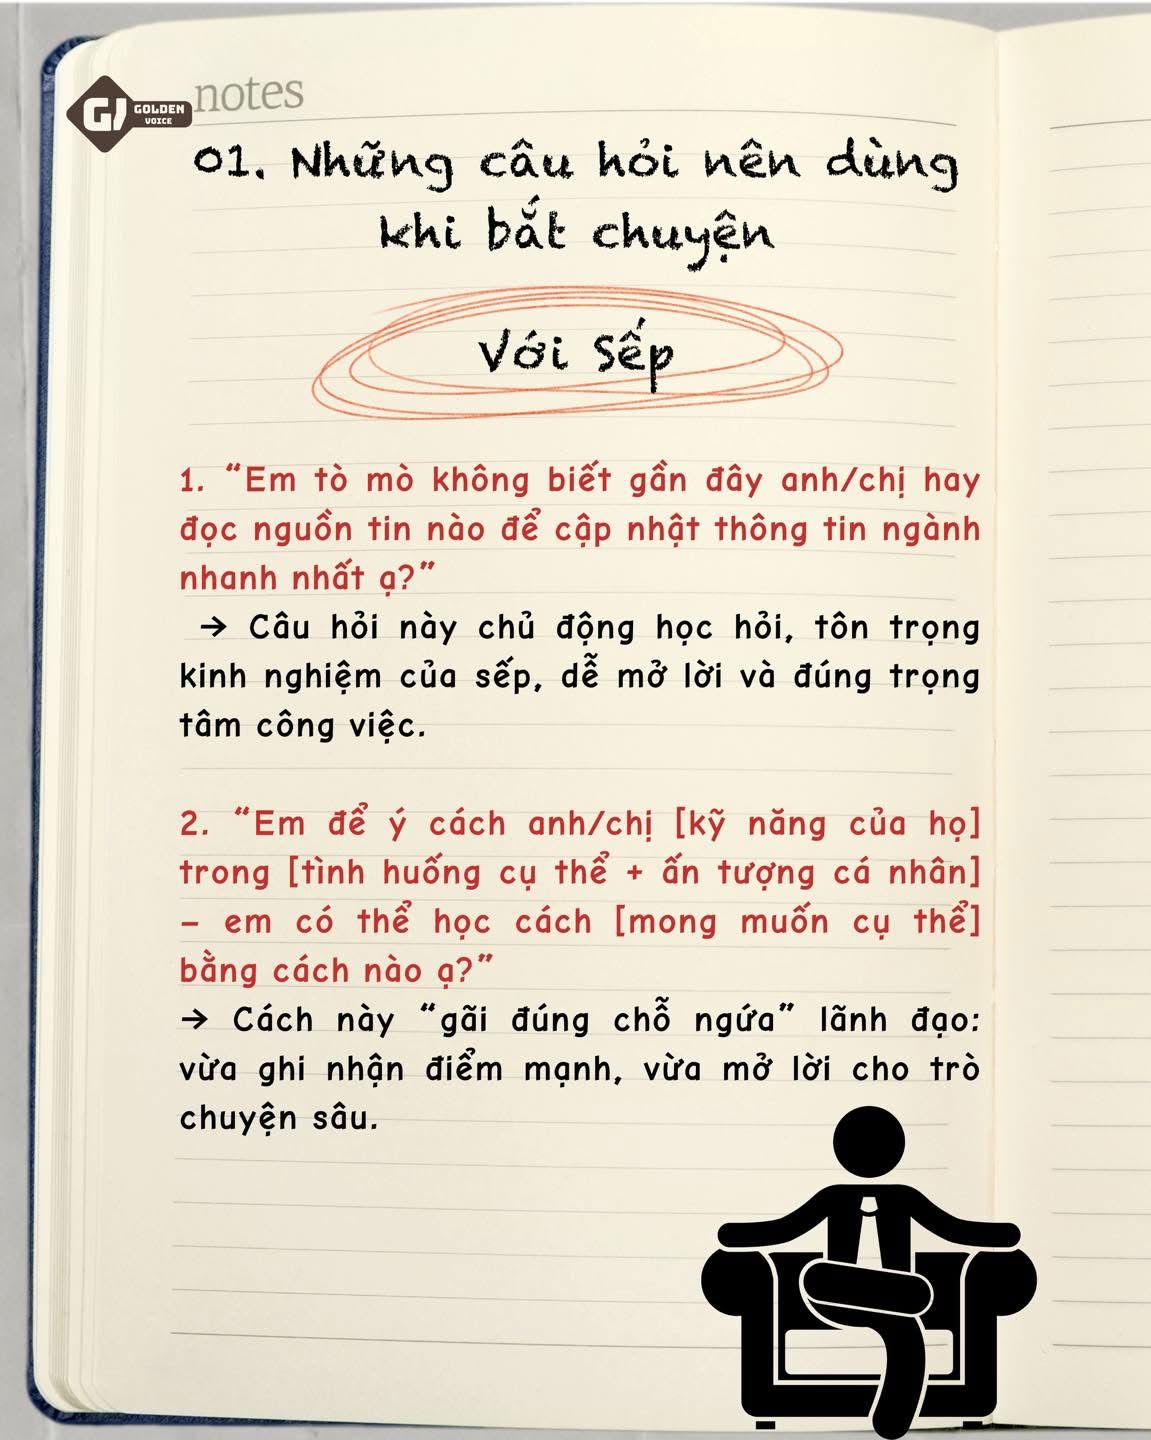 GOLDEN
VOICE
notes
01. Những câu hỏi nên dùng
khi bắt chuyện
Với Sếp
1. “Em tò mò không biết gần đây anh/chị hay
đọc nguồn tin nào để cập nhật thông tin ngành
nhanh nhất ạ?”
→ Câu hỏi này chủ động học hỏi, tôn trọng
kinh nghiệm của sếp, dễ mở lời và đúng trọng
tâm công việc.
2. “Em để ý cách anh/chị [kỹ năng của họ]
trong [tình huống cụ thể + ấn tượng cá nhân]
– em có thể học cách [mong muốn cụ thể]
bằng cách nào ạ?”
→ Cách này “gãi đúng chỗ ngứa” lãnh đạo:
vừa ghi nhận điểm mạnh, vừa mở lời cho trò
chuyện sâu.